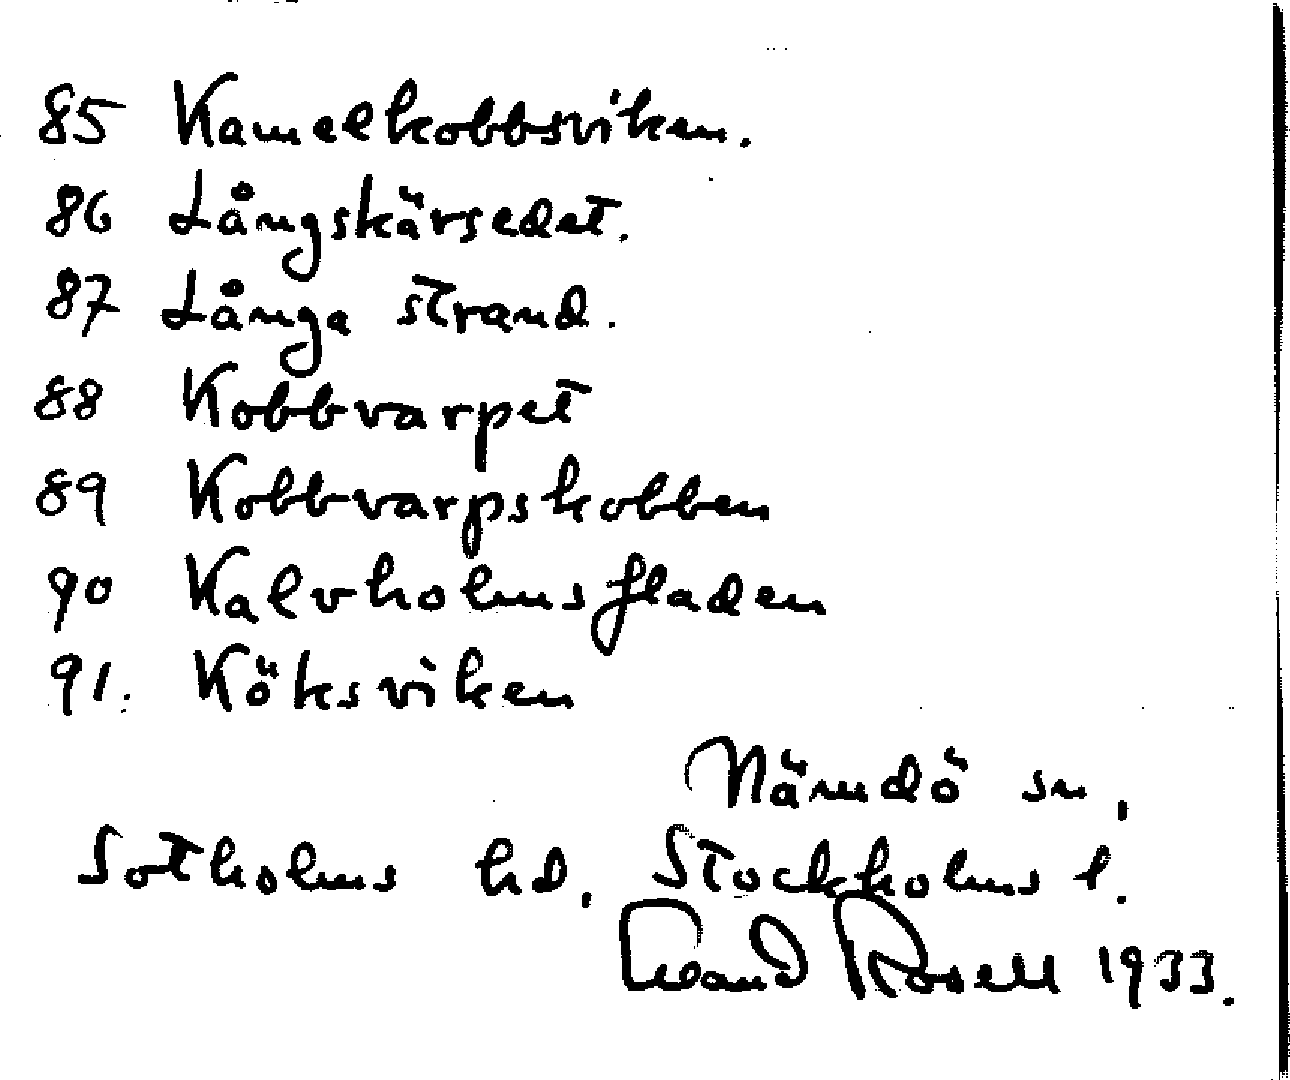 85 Kamelkobbsviken.
86 Långskärsedet.
87 Långa strand.
88 Kobbvarpet
89 Kobbvarpskobben
90 Kalvholmsfladen
91. Köksviken
Nämdö sn,
Sotholms hd. Stockholms l.
Rosell 1933.